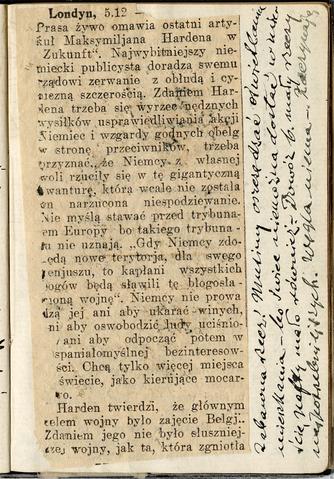 Londyn, 5.12 —
Prasa żywo omawia ostatni arty-
kuł Maksymiljana Hardena w
Zukunft". Najwybitniejszy nie-
miecki publicysta doradza swemu
rządowi zerwanie z obłudą i cy-
niczną szczerością. Zdaniem Har-
dena trzeba się wyrzec nędznych
wysiłków usprawiedliwiania akcji
Niemiec i wzgardy godnych obelg
w stronę przeciwników, trzeba
przyznać, że Niemcy z własnej
woli rzuciły się w tę gigantyczną
awanturę, która wcale nie została
im narzucona niespodziewanie.
Nie myślą stawać przed trybuna-
łem Europy bo takiego trybuna-
łu nie uznają. „Gdy Niemcy zdo-
będą nowe terytorja, dla swego
genjuszu, to kapłani wszystkich
bogów będą sławili tę błogosła-
wioną wojnę". Niemcy nie prowa
dzą jej ani aby ukarać winnych,
ani aby oswobodzić ludy uciśnio-
ne ani aby odpocząć potem w
wspaniałomyślnej bezinteresow-
ności. Chcą tylko więcej miejsca
w świecie, jako kierujące mocar-
stwo.
Harden twierdzi, że głównym
celem wojny było zajęcie Belgji.
Zdaniem jego nie było słuszniej-
szej wojny, jak ta, która zgniotła
Zabawna rzecz! Musimy oszczędzać oświetlenia
mieszkania - bo świec niemożna dostać w mie-
ście, nafty mało również. Dowóz b. mały rzeczy
Węgla niema